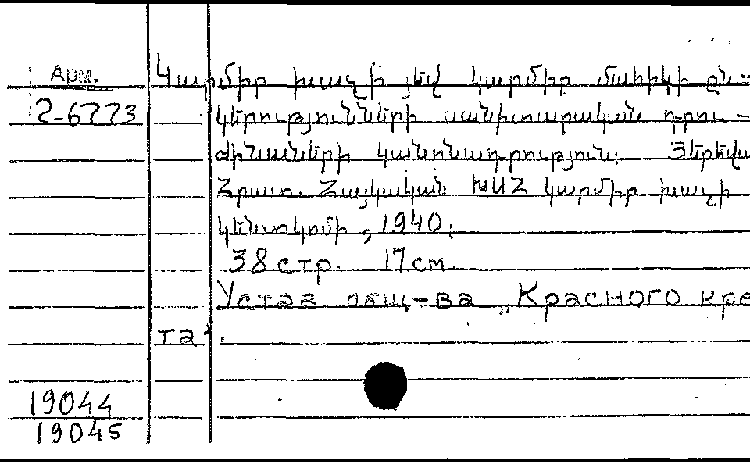 Арм.
2-6773
Կարմիր խաչի յեվ կարմիր մահիկի ըն-
կերությունների սանիտարական դրու-
ժինաների կանոնադրություն: Յերևա
Հրատ. Հայկական ԽՍՀ կարմիր խաչի
կենտկոմի, 1940.
38 стр. 17 см
Устав общ-ва „Красного кре
та".
19044
19045